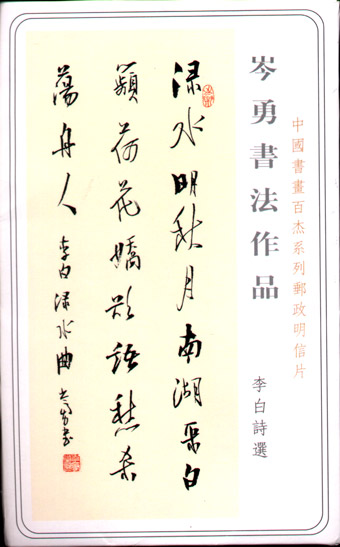 中國書畫百杰系列郵政明信片
岑勇書法作品
李白詩選
淥水明秋月南湖采白
蘋荷花嬌欲語愁杀
蕩舟人 李白淥水曲 岑勇書